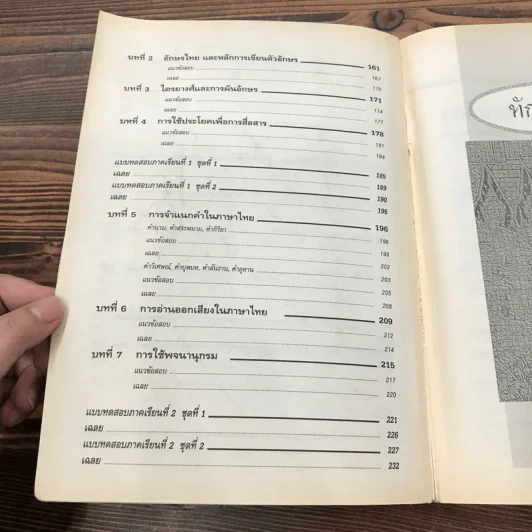 บทที่ 2 อักษรไทย และหลักการเขียนตัวอักษร 161
แนวข้อสอบ 167
เฉลย 170
บทที่ 3 ไตรยางศ์และการผันอักษร 171
แนวข้อสอบ 174
เฉลย 177
บทที่ 4 การใช้ประโยคเพื่อการสื่อสาร 178
แนวข้อสอบ 181
เฉลย 184
แบบทดสอบภาคเรียนที่ 1 ชุดที่ 1 185
เฉลย 189
แบบทดสอบภาคเรียนที่ 1 ชุดที่ 2 190
เฉลย 195
บทที่ 5 การจำแนกคำในภาษาไทย 196
คำนาม, คำสรรพนาม, คำกิริยา 196
แนวข้อสอบ 196
เฉลย 199
คำวิเศษณ์, คำบุพบท, คำสันธาน, คำอุทาน 202
แนวข้อสอบ 203
เฉลย 205
208
บทที่ 6 การอ่านออกเสียงในภาษาไทย 209
แนวข้อสอบ 212
เฉลย 214
บทที่ 7 การใช้พจนานุกรม 215
แนวข้อสอบ 217
เฉลย 220
แบบทดสอบภาคเรียนที่ 2 ชุดที่ 1 221
เฉลย 226
แบบทดสอบภาคเรียนที่ 2 ชุดที่ 2 227
เฉลย 232